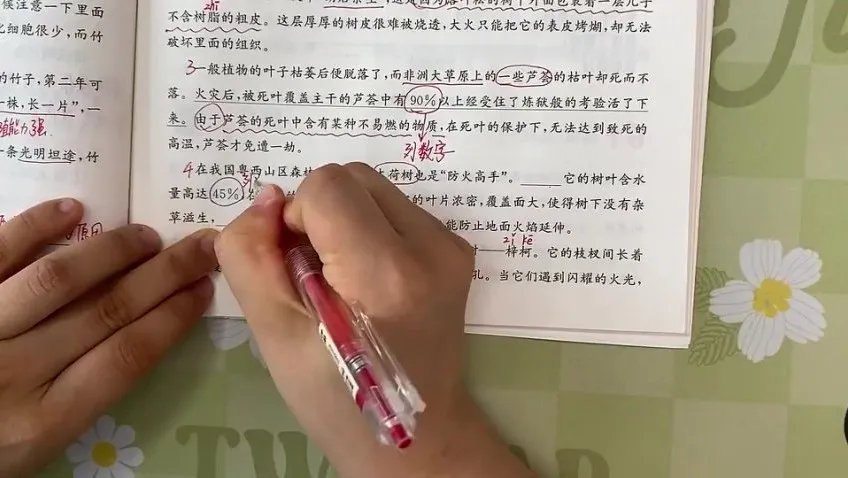 候注意一下里面
细胞很少，而竹
的竹子，第二年可
一株，长一片”，一
殖能力强
一条光明坦途，竹
原因
不含树脂的粗皮。这层厚厚的树皮很难被烧透，大火只能把它的表皮烤煳，却无法
破坏里面的组织。
3一般植物的叶子枯萎后便脱落了，而非洲大草原上的一些芦荟的枯叶却死而不
落。火灾后，被死叶覆盖主干的芦荟中有90%以上经受住了炼狱般的考验活了下
来。由于芦荟的死叶中含有某种不易燃的物质，在死叶的保护下，无法达到致死的
高温，芦荟才免遭一劫。
列数字
4在我国粤西山区森林 荷树也是“防火高手”。 它的树叶含水
量高达45%， 的叶片浓密，覆盖面大，使得树下没有杂
草滋生， 能防止地面火焰延伸。
zǐ kē
梓柯。它的枝杈间长着
孔。当它们遇到闪耀的火光，
TW